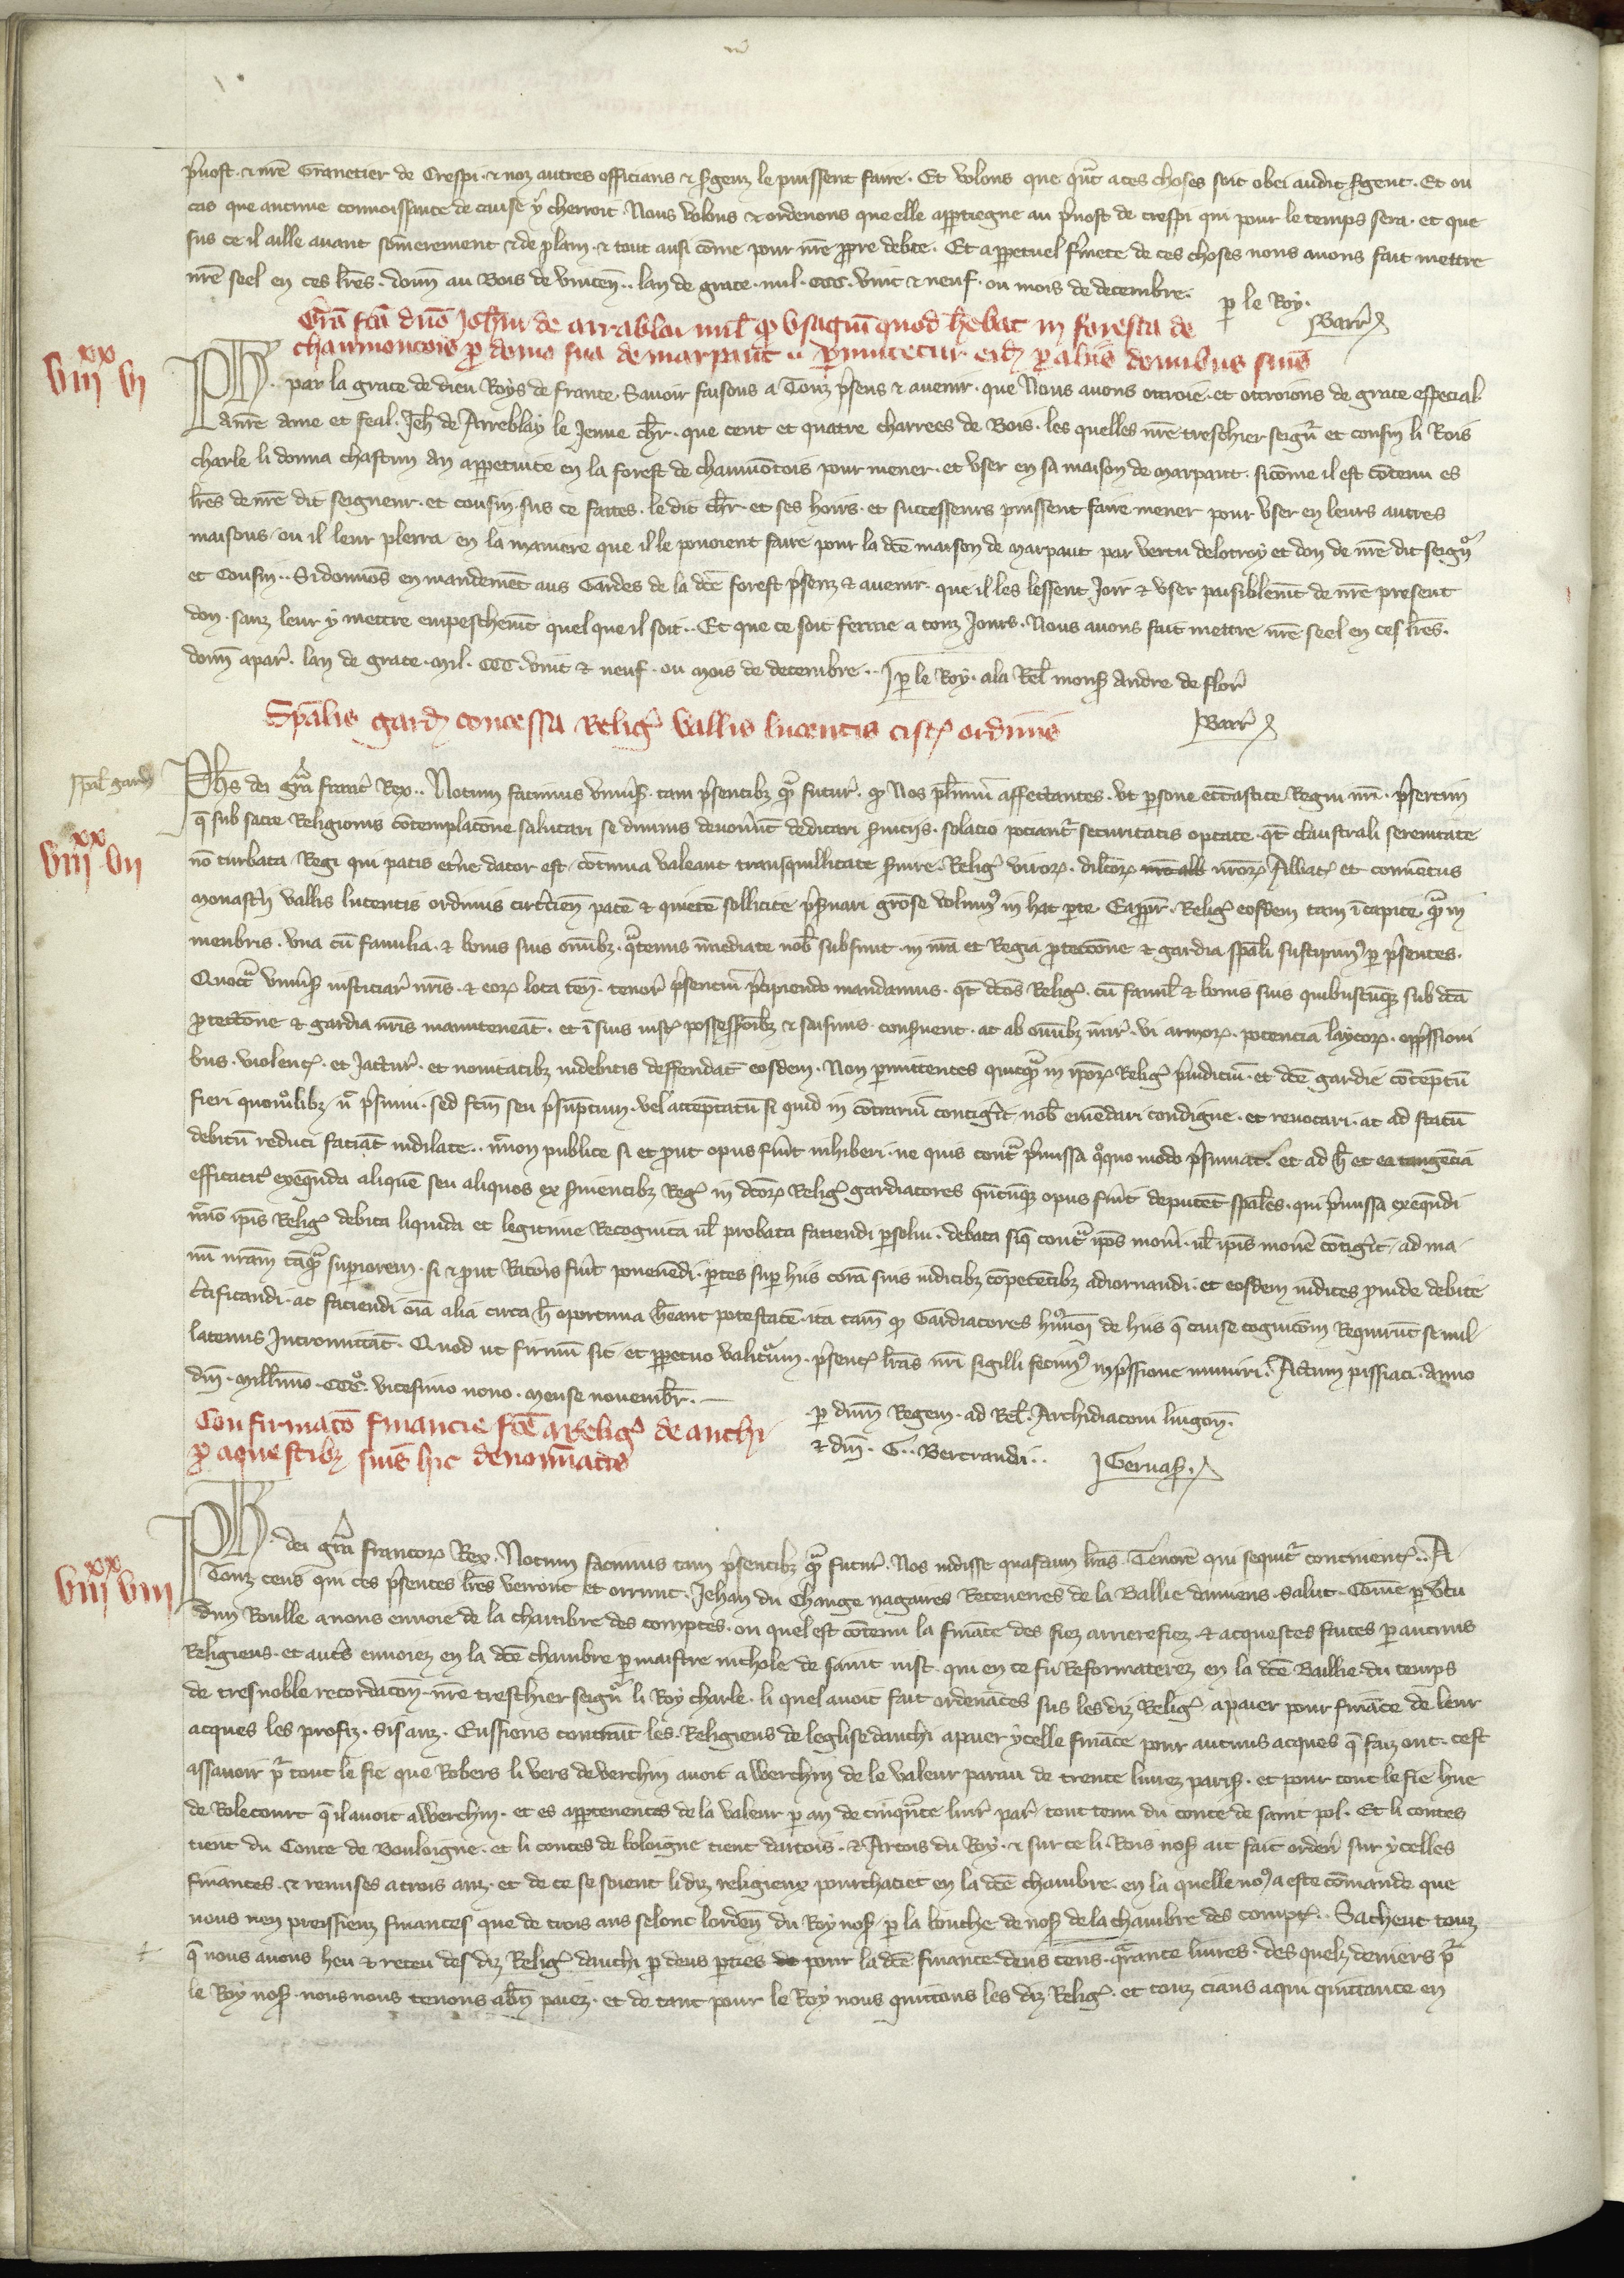 p̃uost · ⁊ nr̃e Granetier de Crespi · ⁊ noz autres officians ⁊ s̃genz le puissent faire · Et volons que qñt a ces choses soit obei audit s̃gent · Et ou
cas que aucune connoissance de cause y cherroit · Nous volons ⁊ ordenons que elle app̃tiegne au p̃uost de crespi qui pour le temps sera · et que
sus ce il aille auant som̃erement ⁊ de plain · ⁊ tout ausi com̃e pour nr̃e ꝓpre debte · Et a ꝑpetuel f̃mete de ces choses nous auons fait mettre
nr̃e seel en ces lr̃es · donn̄ au Bois de vincen̄ ·· lan de grace · mil · CCC · vint ⁊ neuf · ou mois de decembre ·
ꝑ le Roy ·
Barr̃
Gr̃a fc̃a dño Joh̃i de arrablai mil̃ ꝙ vsagiũ quod h̃ebat in foresta de
chaumontois ꝓ domo sua de marpaut ·· ꝑmutetur eid̃ ꝓ aliis domibus suis
viii xx vi
PH · par la grace de dieu Roys de france · Sauoir faisons a Touz p̃sens ⁊ auenir · que Nous auons ottroie · et ottroions de grace especial
a nr̃e ame et feal · Jeh̃ de Arreblay le Jeune ch̃r · que cent et quatre charrees de Bois · les quelles nr̃e treschier seigñr et cousin li Rois
charle li donna chascun an a ꝑpetuite en la forest de chaumõtois pour mener · et vser en sa maison de marpaut · si cõme il est cõtenu es
lr̃es de nr̃e dit seigneur · et cousin sus ce faites · le dit ch̃r · et ses hoirs · et successeurs puissent faire mener pour vser en leurs autres
maisons / ou il leur plerra en la maniere que il le pouoient faire pour la dc̃e maison de marpaut par vertu de lotroy et don de nr̃e dit seigñr
et Cousin ·· Si donnõs en mandemẽt aus Gardes de la dc̃e forest p̃senz ⁊ auenir · que il les lessent Joir ⁊ vser paisiblem̃t de nr̃e present
don · sanz leur y mettre empeschem̃t quel que il soit ·· Et que ce soit ferme a touz Jours · Nous auons fait mettre nr̃e seel en ces lr̃es ·
donn̄ a par̃ · lan de grace · mil · CCC · vint ⁊ neuf · ou mois de decembre ·· ꝑ le Roy · a la Rel̃ mons̃ Andre de flor̃
Barr̃
Spãlis gard̃ concessa Relig̃ vallis lucentis cist̃ ordinis
sp̃al gard̃
viii xx vii
Ph̃s dei gr̃a franc̃ Rex ·· Notum facimus vniũs̃ tam p̃sentibz q̃ᵃ futur̃ · ꝙ Nos pl̃imũ affectantes · vt ꝑsone ecc̃astice Regni nr̃i · p̃sertim
q̃ sub sacre Religionis cõtemplac̃one salutari se diuinis deuouer̃ũt dedicari s̃uicijs · solacio pociant̃ securitatis optate · qt̃ claustrali serenitate
nõ turbata / Regi qui pacis et̃ne dator est / cõtinua valeant transquillitate s̃uire · Relig̃ viroꝝ · dilc̃oꝝ nr̃oꝝ Abbat̃ et conuẽtus
monast̃ij vallis lucentis ordinis cist̃cien̄ pacẽ ⁊ quietẽ sollicite p̃s̃uari grõse volum⁹ in hac ꝑte · Eapp̃ · Relig̃ eosdem tam ĩ capite q̃ᵃ in
membris · vna cũ familia · ⁊ bonis suis om̃ibz · q̃ᵃtenus ĩmediate nob̃ subsunt · in nr̃a et Regia ꝓtecc̃one ⁊ gardia spãli suscipim⁹ ꝑ p̃sentes ·
Quocᵃ vniũs̃ iusticiar̃ nr̃is · ⁊ eoꝝ loca ten̄ · tenor̃ p̃sentiũ p̃cipiendo mandamus · qt̃ dc̃os Relig̃ · cũ famil̃ ⁊ bonis suis quibuscũqꝫ sub dc̃a
ꝓtecc̃one ⁊ gardia nr̃is manuteneãt · et ĩ suis iust̃ possess̃ibz ⁊ saisinis cons̃uent · ac ab om̃ibz iniur̃ · vi armoꝝ · potencia laycoꝝ · opp̃ssioni
bus · violent̃ · et Jactur̃ · et nouitatibz indebitis deffendãt eosdem · Non ꝑmittentes quicq̃ᵃ in ip̃oꝝ Relig̃ p̃iudiciũ · et dc̃e gardie cõtẽptũ
fieri quomᵒlibz · ul̃ p̃sumi · sed fc̃m seu p̃sũptum · vel acceptatũ si quid in cõtrariũ contig̃it nob̃ emẽdari condigne · et reuocari · ac ad statũ
debitũ reduci faciãt indilate ·· nr̃mon publice si et ꝓut opus fũit inhiberi · ne quis cont̃ᵃ p̃missa qᵒquo modo p̃sumat · et ad h̃ et ea tangẽcia
efficacit̃ exeq̃nda aliquẽ seu aliquos ex s̃uientibz Reg̃ in dc̃oꝝ Relig̃ gardiatores qñcũqꝫ opus fũit deputẽt spãles · qui p̃missa exeq̃ndi
nr̃mõ ip̃is Relig̃ debita liquida et legitime Recognita ul̃ probata faciendi ꝑsolui · debata siq̃ cont̃ᵃ ip̃os mou̾i · ul̃ ip̃is mou̾e cõtig̃it / ad ma-
nũ nr̃am tãq̃ᵃ suꝑiorem · si ⁊ ꝓut Rac̃õis fũit ponẽdi · ꝑtes suꝑ hiis corã suis iudicibz cõpetẽtibz adiornandi · et eosdem iudices ꝓinde debite
c̃tificandi · ac faciendi oĩa alia circa h̃ oportuna h̃eant potestatẽ · ita tam̃ ꝙ Gardiatores hᵒmõi de hiis q̃ cause cognic̃om Requirũt se nul-
latenus Intromittãt · Quod ut firmũ sit et ꝑpetuo valitᵒum · p̃sent̃ lr̃as nr̃i sigilli fecim⁹ imp̃ssione muniri ·· Actum pissiaci · anno
dñi · millĩmo · CCCᵒ · vicesimo nono · mense nouembr̃ ·
ꝑ dñm Regem · ad Rel̃ · Archidiaconi lingon̄ ·
⁊ dñi · G · Bertrandi ··
Geruas̃
Confirmac̃o financie fc̃e a Relig̃ de auchi
ꝓ aquestibz suis hic denoĩatis
viii xx viii
PH · dei gr̃a francoꝝ Rex · Notum facimus tam p̃sentibz q̃ᵃ futur̃ · Nos uidisse quasdam lr̃as · Tenorẽ qui sequit̃ continent̃ ·· A
Touz ceus qui ces p̃sentes lr̃es verront et orront · Jehan du Change nagaires Receueres de la Baillie damiens · salut · Com̃e ꝑ v̾tu
dun Roulle a nous enuoie de la chambre des comptes · ou quel est cõtenu la finãce des fiez arrierefiez · ⁊ acquestes faites ꝑ aucuns
Religieus · et aut̃s enuoiez en la dc̃e chambre ꝑ maistre nichole de saint iust · qui en ce fu Reformaterez en la dc̃e Baillie · du temps
de tres noble recordac̃on · nr̃e treschier seigñr li Roy charle · li quel auoit fait ordenãces sus les diz Relig̃ a paier pour finãce de leur
acques les profiz · sis anz · Eussiens contraĩt les Religieus de leglise dauchi a paier ycelle finãce pour aucuns acques q̃ faiz ont · cest
assauoir pᵒ tout le fie que Robers li vers de verchin auoit a werchin de le valeur par an de trente liurez paris̃ · et pour tout le fie hue
de Rolecourt q̃ il auoit a werchin · et es appertenences de la valeur ꝑ an de cinq̃nte liur̃ par̃ tout tenu du conte de saint pol · Et li contes
tient du Conte de Bouloigne · et li contes de boloigne tient dartois · ⁊ Artois du Roy · ⁊ sur ce li Rois nos̃ ait fait orden̄ sur ycelles
finances · ⁊ remises a trois anz · et de ce se soient li diz religieux pourchaciet en la dc̃e chambre · en la quelle no⁹ a este cõmande que
nous nen preissienz finances que de trois ans selonc lorden̄ du Roy nos̃ / ꝑ la bouche de nos̃ de la chambre des compt̃ ·· Sachent touz
q̃ nous auons heu ⁊ receu des diz Relig̃ dauchi ꝑ deus ꝑties pour la dc̃e finance deus cens · q̃rante liures · des quelz deniers pᵒ
le Roy nos̃ · nous nous tenons a bñ paiez · et de tant pour le Roy nous quittons les diz Relig̃ · et touz ciaus a qui quittance en